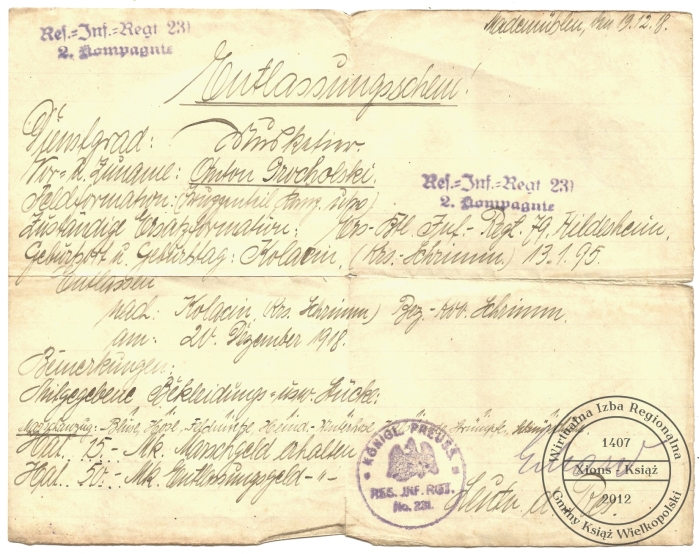 Res.=Inf.=Regt 231
2. Kompagnie
den 19.12.18.
Entlassungsschein!
Dienstgrad: Musketier.
Vor- u. Zuname: Anton Grocholski.
Res.=Inf.=Regt 231
2. Kompagnie
Feldformation: (Truppenteil, Komp. usw.)
Zuständige Ersatzformation: Ers.-Btl. Inf.-Regt. 79, Hildesheim.
Geburtsort u. Geburtstag: Kolacin, (Krs. Schrimm) 13.1.95.
Entlassen
nach: Kolacin, (Krs. Schrimm) Bez.-Kdo. Schrimm.
am: 20. Dezember 1918.
Bemerkungen:
Mitgegebene Bekleidungs- usw. Stücke:
Marschanzug: Bluse, Hose, Feldmütze, Hemd, Unterhose, Strümpfe
Hat 15.- Mk. Marschgeld erhalten
Hat 50.- Mk. Entlassungsgeld -"-
KÖNIGL. PREUSS.
RES. INF. RGT.
No. 231.
Leutn. d. Res.
Wirtualna Izba Regionalna
1407
Xions - Książ
2012
Gminy Książ Wielkopolski